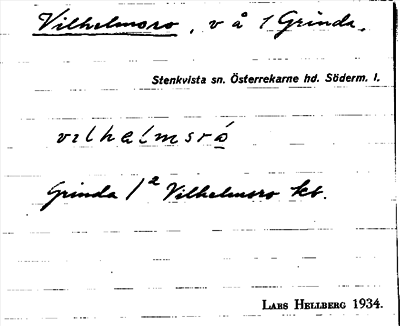 Vilhelmsro, v å 1 Grinda.
Stenkvista sn. Österrekarne hd. Söderm. l.
vilhalmsró
Grinda 1² Vilhelmsro kb.
Lars Hellberg 1934.